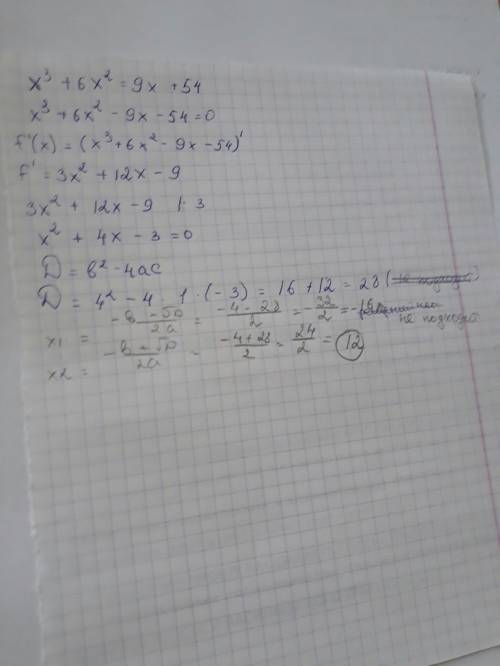 x³ + 6x² = 9x + 54
x³ + 6x² - 9x - 54 = 0
f'(x) = (x³ + 6x² - 9x - 54)'
f' = 3x² + 12x - 9
3x² + 12x - 9 |: 3
x² + 4x - 3 = 0
D = b² - 4ac
D = 4² - 4 · 1 · (-3) = 16 + 12 = 28
x1 = (-b - √D)/2a = (-4 - 28)/2 = -32/2 = -16 не подходит
x2 = (-b + √D)/2a = (-4 + 28)/2 = 24/2 = 12